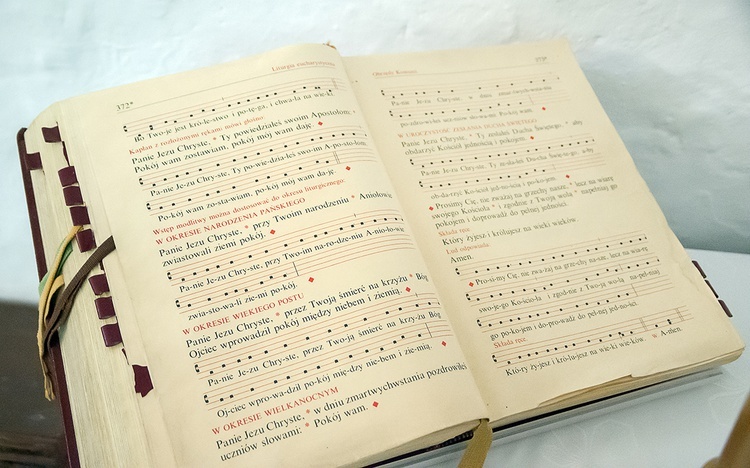 372*
Liturgia eucharystyczna
Bo Two-je jest kró-le-stwo i po-tę-ga, i chwa-ła na wie-ki.
Kapłan z rozłożonymi rękami mówi głośno:
Panie Jezu Chryste, * Ty powiedziałeś swoim Apostołom: *
Pokój wam zostawiam, pokój mój wam daję.
Pa-nie Je-zu Chry-ste, Ty po-wie-dzia-łeś swo-im A-po-sto-łom:
Po-kój wam zo-sta-wiam, po-kój mój wam da-ję.
Wstęp modlitwy można dostosować do okresu liturgicznego:
W OKRESIE NARODZENIA PAŃSKIEGO
Panie Jezu Chryste, * przy Twoim narodzeniu * Aniołowie
zwiastowali ziemi pokój.
Pa-nie Je-zu Chry-ste, przy Two-im na-ro-dze-niu A-nio-ło-wie
zwia-sto-wa-li zie-mi po-kój.
W OKRESIE WIELKIEGO POSTU
Panie Jezu Chryste, * przez Twoją śmierć na krzyżu * Bóg
Ojciec wprowadził pokój między niebem i ziemią.
Pa-nie Je-zu Chry-ste, przez Two-ją śmierć na krzy-żu Bóg
Oj-ciec wpro-wa-dził po-kój mię-dzy nie-bem i zie-mią.
W OKRESIE WIELKANOCNYM
Panie Jezu Chryste, * w dniu zmartwychwstania pozdrowiłeś
uczniów słowami: * Pokój wam.
Obrzędy Komunii
373*
Pa-nie Jezu Chryste, w dniu zmar-twych-wsta-nia
po-zdro-wi-łeś ucz-niów sło-wa-mi: Po-kój wam.
W UROCZYSTOŚĆ ZESŁANIA DUCHA ŚWIĘTEGO
Panie Jezu Chryste, * Ty zesłałeś Ducha Świętego, * aby
obdarzyć Kościół jednością i pokojem.
Pa-nie Jezu Chryste, Ty zesłałeś Ducha Świę-te-go, a-by
ob-da-rzyć Ko-ściół jed-no-ścią i po-ko-jem.
Prosimy Cię, nie zważaj na grzechy nasze, * lecz na wiarę
swojego Kościoła * i zgodnie z Twoją wolą * napełniaj go
pokojem i doprowadź do pełnej jedności.
Składa ręce.
Który żyjesz i królujesz na wieki wieków.
Lud odpowiada:
Amen.
Pro-si-my Cię, nie zwa-żaj na grze-chy na-sze, lecz na wia-rę
swo-je-go Ko-ścio-ła i zgod-nie z Two-ją wo-lą na-peł-niaj
go po-ko-jem i do-pro-wadź do peł-nej jed-no-ści.
Składa ręce.
Któ-ry ży-jesz i kró-lu-jesz na wie-ki wie-ków. W. A-men.